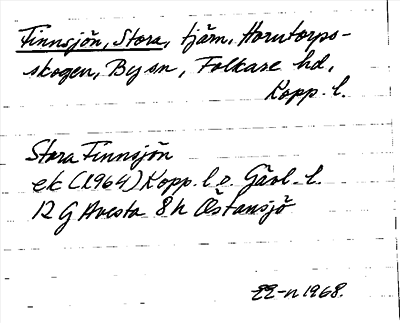 Finnsjön, Stora, tjärn, Horntorps-
skogen, By sn, Folkare hd,
Kopp. l.
Stora Finnsjön
ek (1964) Kopp. l o. Gävl. l.
12 G Avesta 8 h Östansjö
1968.